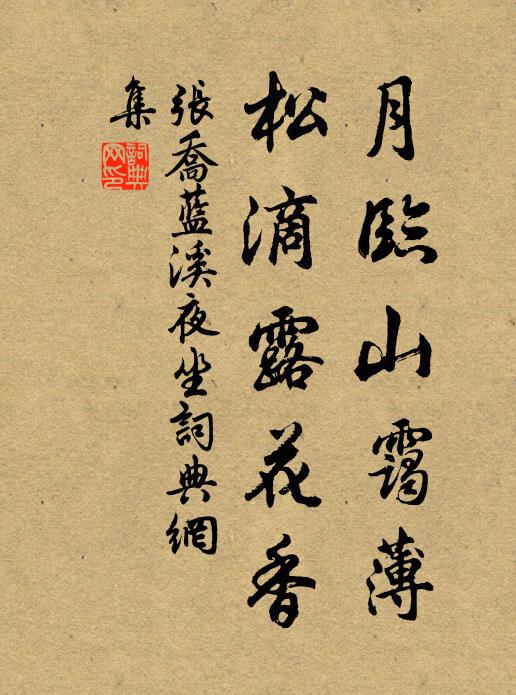 月臨山靄薄
松滴露花香
張喬藍溪夜坐詞典網
集
詞典網印